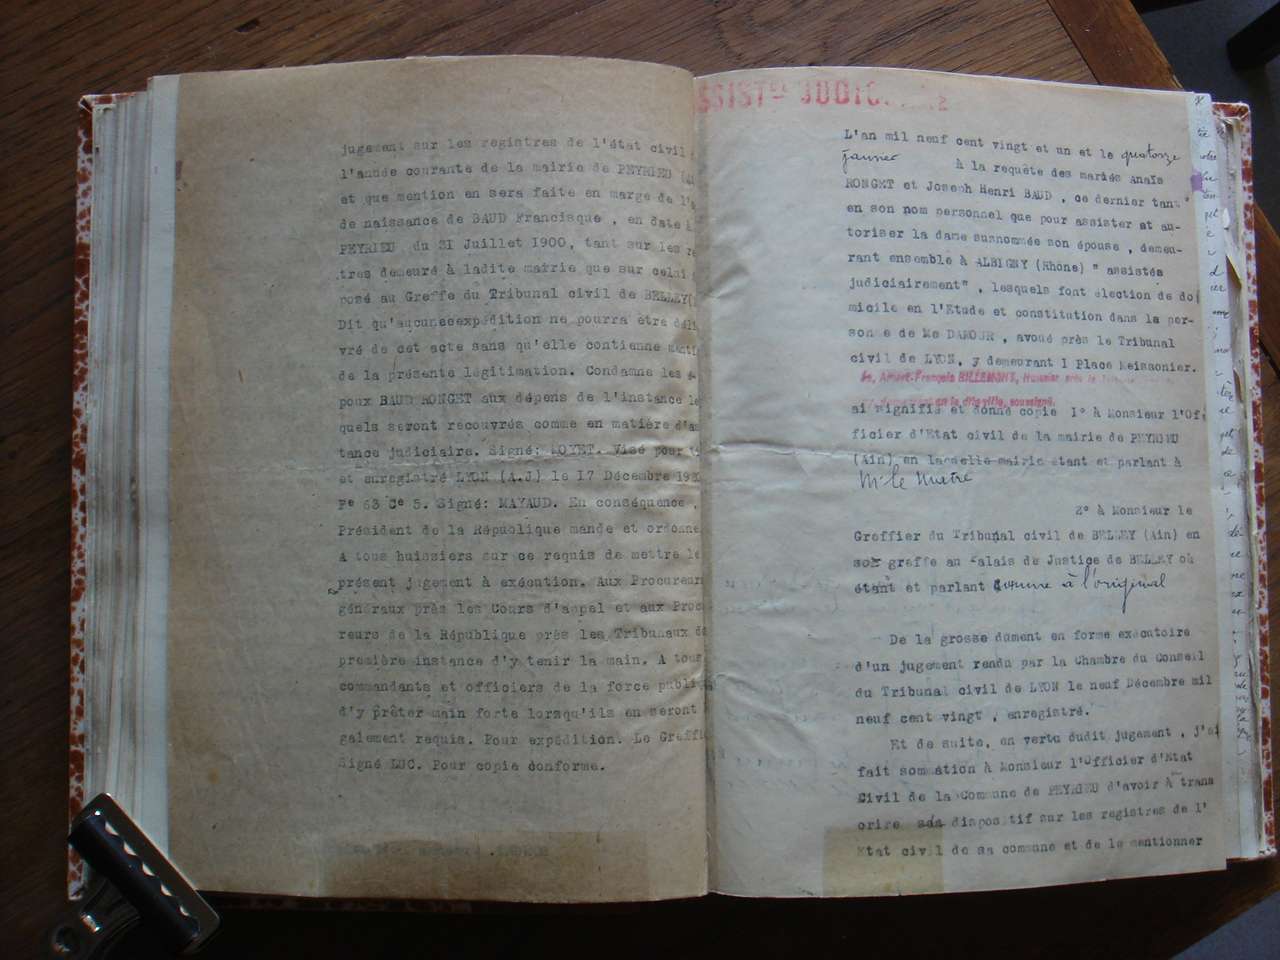 jugement sur les registres de l'état civil
l'année courante de la mairie de PEYRIEU
et que mention en sera faite en marge de l'
de naissance de BAUD Francisque , en date à
PEYRIEU du 21 Juillet 1900, tant sur les re
tres demeuré à ladite mairie que sur celui
posé au Greffe du Tribunal civil de BELLEY(
Dit qu'aucuneexpédition ne pourra être déli
vré de cet acte sans qu'elle contienne menti
de la présente légitimation. Condamne les é
poux BAUD RONGET aux dépens de l'instance le
quels seront recouvrés comme en matière d'as
tance judiciaire. Signé: MOYET. Visé pour ti
et enregistré LYON (A.J) le 17 Décembre 1920
Fe 63 Ce 5. Signé: MAYAUD. En conséquence ,
Président de la République mande et ordonne
A tous huissiers sur ce requis de mettre le
présent jugement à exécution. Aux Procureur
généraux près les Cours d'appel et aux Proc
reurs de la République près les Tribunaux de
première instance d'y tenir la main. A tous
commandants et officiers de la force publiq
d'y prêter main forte lorsqu'ils en seront
galement requis. Pour expédition. Le Greffi
Signé LUC. Pour copie conforme.
ASSISTce JUDIC
L'an mil neuf cent vingt et un et le quatorze
janvier À la requête des mariés Anaïs
RONGET et Joseph Henri BAUD , ce dernier tant
en son nom personnel que pour assister et au-
toriser la dame susnommée son épouse , demeu-
rant ensemble à ALBIGNY (Rhône) " assistés
judiciairement" , lesquels font élection de do
micile en l'Etude et constitution dans la per-
sonne de Me DAMOUR , avoué près le Tribunal
civil de LYON, y demeurant I Place Meissonier.
Je, François BILLEMONT, Huissier près le
demeurant en la dite ville, soussigné,
ai signifié et donné copie I° à Monsieur l'Of
ficier d'Etat civil de la mairie de PEYRIEU
(Ain) en laquelle mairie étant et parlant à
Mr le Maire
2° à Monsieur le
Greffier du Tribunal civil de BELLEY (Ain) en
son greffe au Palais de Justice de BELLEY où
étant et parlant comme à l'original
De la grosse dument en forme exécutoire
d'un jugement rendu par la Chambre du Conseil
du Tribunal civil de LYON le neuf Décembre mil
neuf cent vingt , enregistré.
Et de suite, en vertu dudit jugement , j'ai
fait sommation à Monsieur l'Officier d'Etat
Civil de la Commune de PEYRIEU d'avoir à trans
crire dispositif sur les registres de l'
Etat civil de sa commune et de le mentionner